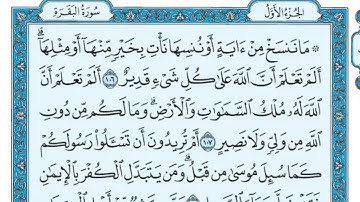 الجزء الأول سورة البقرة
* مَا نَنسَخْ مِنْ ءَايَةٍ أَوْ نُنسِهَا نَأْتِ بِخَيْرٍ مِّنْهَآ أَوْ مِثْلِهَآ ۗ
أَلَمْ تَعْلَمْ أَنَّ ٱللَّهَ عَلَىٰ كُلِّ شَىْءٍ قَدِيرٌ ١٠٦ أَلَمْ تَعْلَمْ أَنَّ
ٱللَّهَ لَهُۥ مُلْكُ ٱلسَّمَٰوَٰتِ وَٱلْأَرْضِ ۗ وَمَا لَكُم مِّن دُونِ
ٱللَّهِ مِن وَلِىٍّ وَلَا نَصِيرٍ ١٠٧ أَمْ تُرِيدُونَ أَن تَسْـَٔلُوا۟ رَسُولَكُمْ
كَمَا سُئِلَ مُوسَىٰ مِن قَبْلُ ۗ وَمَن يَتَبَدَّلِ ٱلْكُفْرَ بِٱلْإِيمَٰنِ